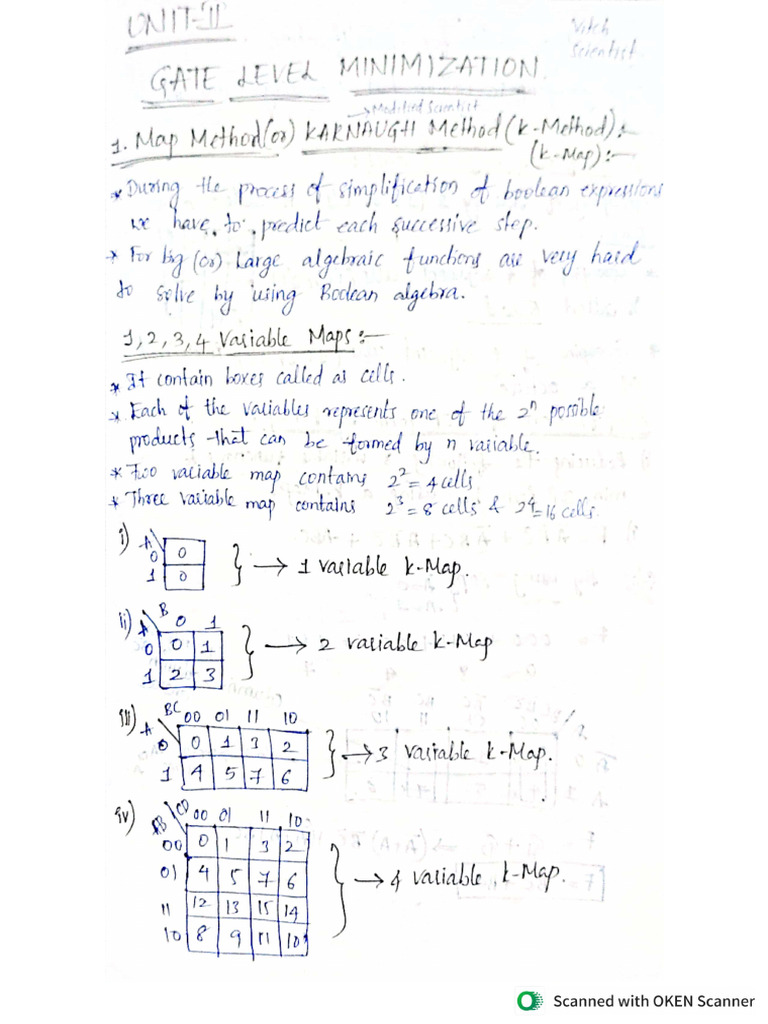 UNIT-II
Vitch
Scientist
GATE LEVEL MINIMIZATION
→ Modified Scientist
1. Map Method (or) KARNAUGH Method (k-Method):-
(k-Map):-
* During the process of simplification of boolean expressions
we have to predict each successive step.
* For big (or) Large algebraic functions are very hard
to solve by using Boolean algebra.
1, 2, 3, 4 Variable Maps:-
* It contain boxes called as cells.
* Each of the variables represents one of the 2ⁿ possible
products that can be formed by n variable.
* Two variable map contains 2² = 4 cells
* Three variable map contains 2³ = 8 cells & 2⁴ = 16 cells.
i) A
0 0
1 0
} → 1 variable k-Map.
ii) A B 0 1
0 0 1
1 2 3
} → 2 variable k-Map
iii) A BC 00 01 11 10
0 0 1 3 2
1 4 5 7 6
} → 3 variable k-Map.
iv) AB CD 00 01 11 10
00 0 1 3 2
01 4 5 7 6
11 12 13 15 14
10 8 9 11 10
} → 4 variable k-Map.
Scanned with OKEN Scanner